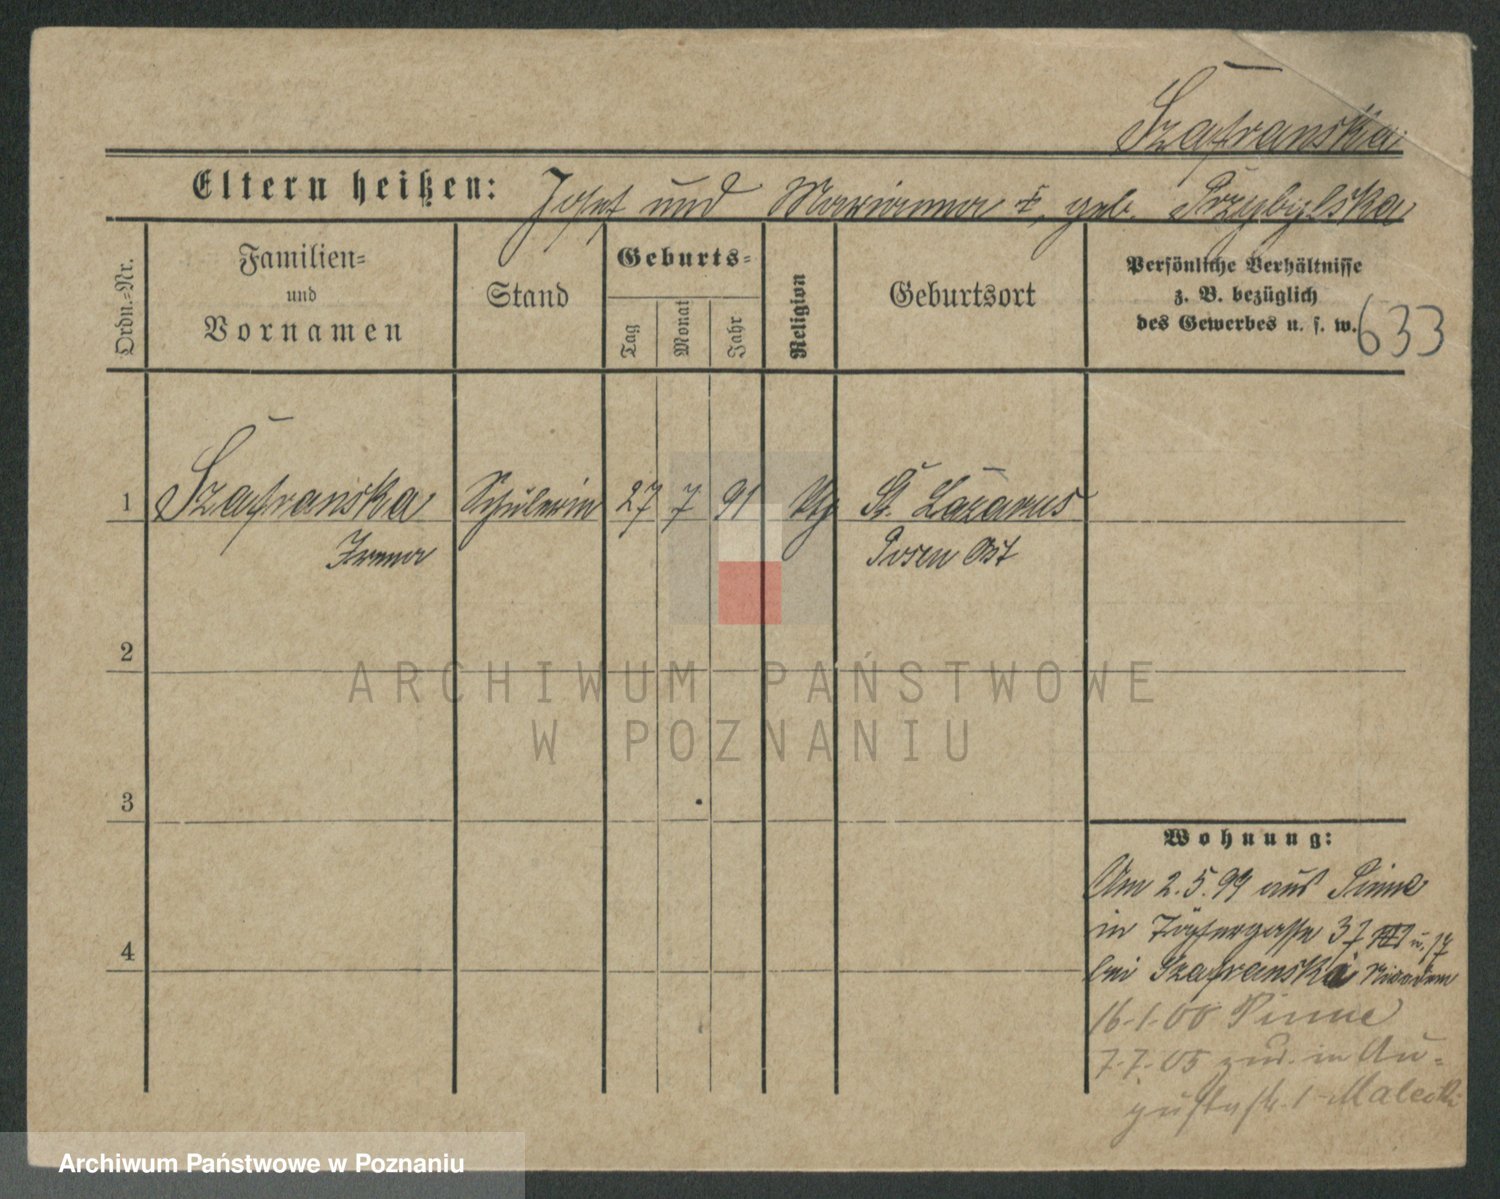 Szafranska
Eltern heißen: Josef und Marianna geb. Przybylska
Ordn.=Nr.
Familien=
und
Vornamen
Stand
Geburts=
Tag
Monat
Jahr
Religion
Geburtsort
Persönliche Verhältnisse
z. B. bezüglich
des Gewerbes u. s. w.
633
1 Szafranska Schülerin 27 7 91 St. Lazarus
Irena Posen Ost
2
3
4
Wohnung:
Am 2.5.99 aus Pinne
in Töpfergasse 37
bei Szafranski
16-1-00 Pinne
7-7-05 zur. in Au=
gustastr. 1 Malecki
ARCHIWUM PAŃSTWOWE
W POZNANIU
Archiwum Państwowe w Poznaniu